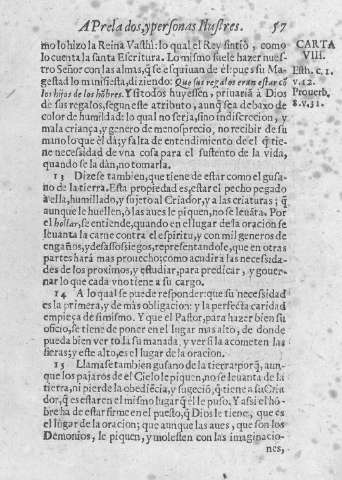 A Prelados, y personas Ilustres. 57
mo lo hizo la Reina Vasthi: lo qual el Rey sintió, como
lo cuenta la santa Escritura. Lo mismo suele hazer nues-
tro Señor con las almas, q̃ se esquiuan de él: pues su Ma-
gestad lo manifiesta, diziendo: Que sus regalos eran estar cõ
los hijos de los hõbres. Y si todos huyessen, priuariã à Dios
de sus regalos, segun este atributo, aunq̃ sea debaxo de
color de humildad: lo qual no seria, sino indiscrecion, y
mala criança, y genero de menosprecio, no recibir de su
mano lo que èl dà; y falta de entendimiento de el q̃ tie-
ne necessidad de vna cosa para el sustento de la vida,
quando se la dàn, no tomarla.
CARTA
VIII.
Esth. c. 1.
v. 12.
Prouerb.
8. v. 31.
13 Dizese tambien, que tiene de estar como el gusa-
no de la tierra. Esta propiedad es, estar el pecho pegado
à ella, humillado, y sujeto al Criador, y à las criaturas; q̃
aunque le huellen, ò las aues le piquen, no se leuãta. Por
el hollar, se entiende, quando en el lugar de la oracion se
leuanta la carne contra el espiritu, y con mil generos de
engaños, y desassossiegos, representandole, que en otras
partes harà mas prouecho; como acudir a las necessida-
des de los proximos, y estudiar, para predicar, y gouer-
nar lo que cada vno tiene a su cargo.
14 A lo qual se puede responder: que su necessidad
es la primera, y de màs obligacion: y la perfecta caridad
empieça de si mismo. Y que el Pastor, para hazer bien su
oficio, se tiene de poner en el lugar mas alto, de donde
pueda bien ver toda su manada, y ver si la acometen las
fieras; y este alto, es el lugar de la oracion.
15 Llamase tambien gusano de la tierra: porq̃, aun-
que los paxaros de el Cielo le piquen, no se leuanta de la
tierra, ni pierde la obediẽcia, y sugeciõ, q̃ tiene a su Cria-
dor, q̃ es estar en el mismo lugar q̃ èl le puso. Y assi el hõ-
bre ha de estar firme en el puesto, q̃ Dios le tiene, que es
el lugar de la oracion; que aunque las aues, que son los
Demonios, le piquen, y molesten con las imaginacio-
nes,